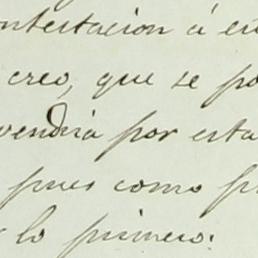 ntestacion á en
creo, que se po
vendria por esta
pues como pr
lo primero: